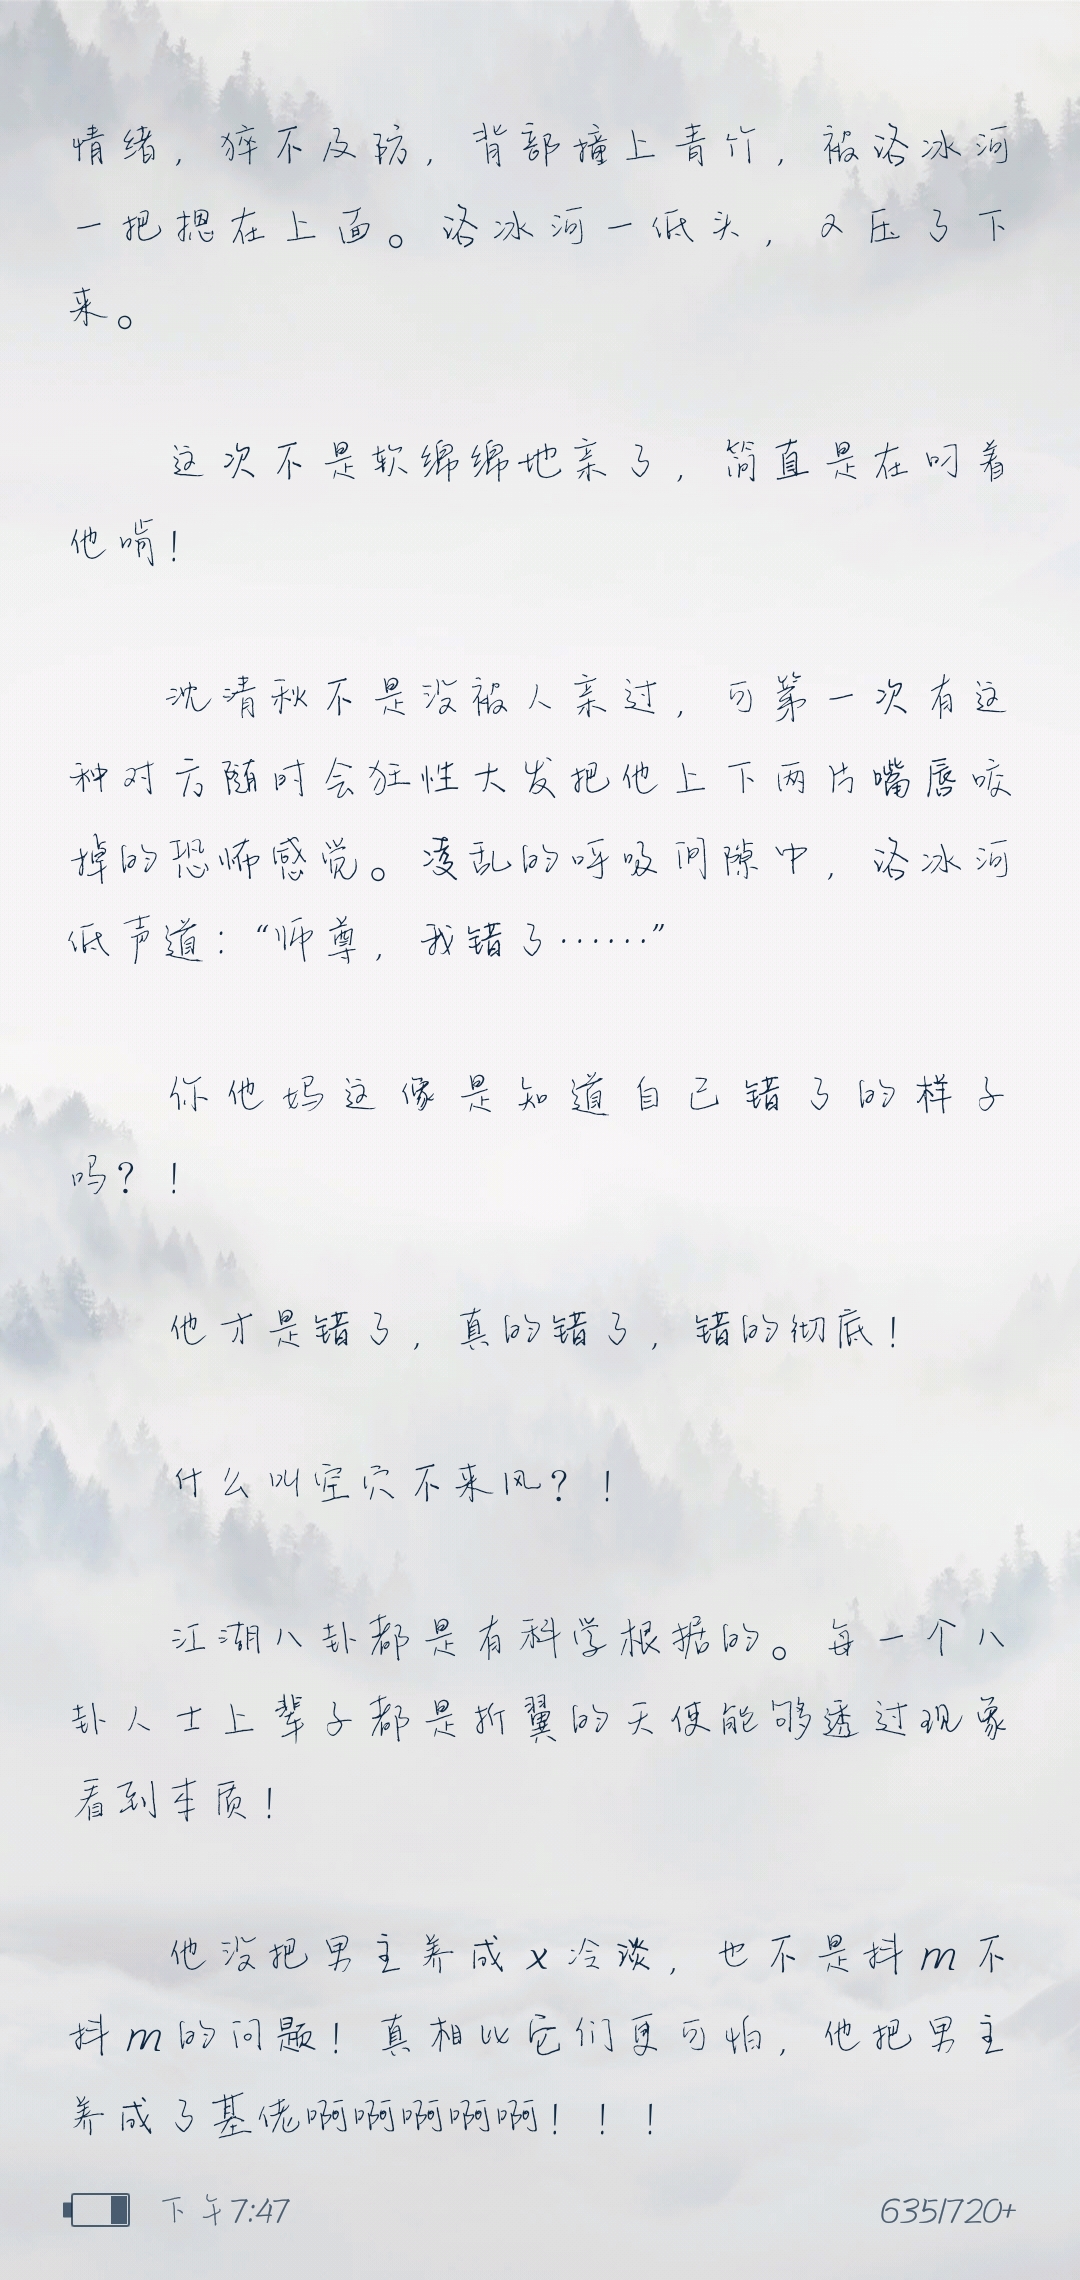 情绪，猝不及防，背部撞上青竹，被洛冰河
一把摁在上面。洛冰河一低头，又压了下
来。
这次不是软绵绵地亲了，简直是在叼着
他啃！
沈清秋不是没被人亲过，可第一次有这
种对方随时会狂性大发把他上下两片嘴唇咬
掉的恐怖感觉。凌乱的呼吸间隙中，洛冰河
低声道：“师尊，我错了……”
你他妈这像是知道自己错了的样子
吗？！
他才是错了，真的错了，错的彻底！
什么叫空穴不来风？！
江湖八卦都是有科学根据的。每一个八
卦人士上辈子都是折翼的天使能够透过现象
看到本质！
他没把男主养成x冷淡，也不是抖m不
抖m的问题！真相比它们更可怕，他把男主
养成了基佬啊啊啊啊啊！！！
下午7:47
635/720+